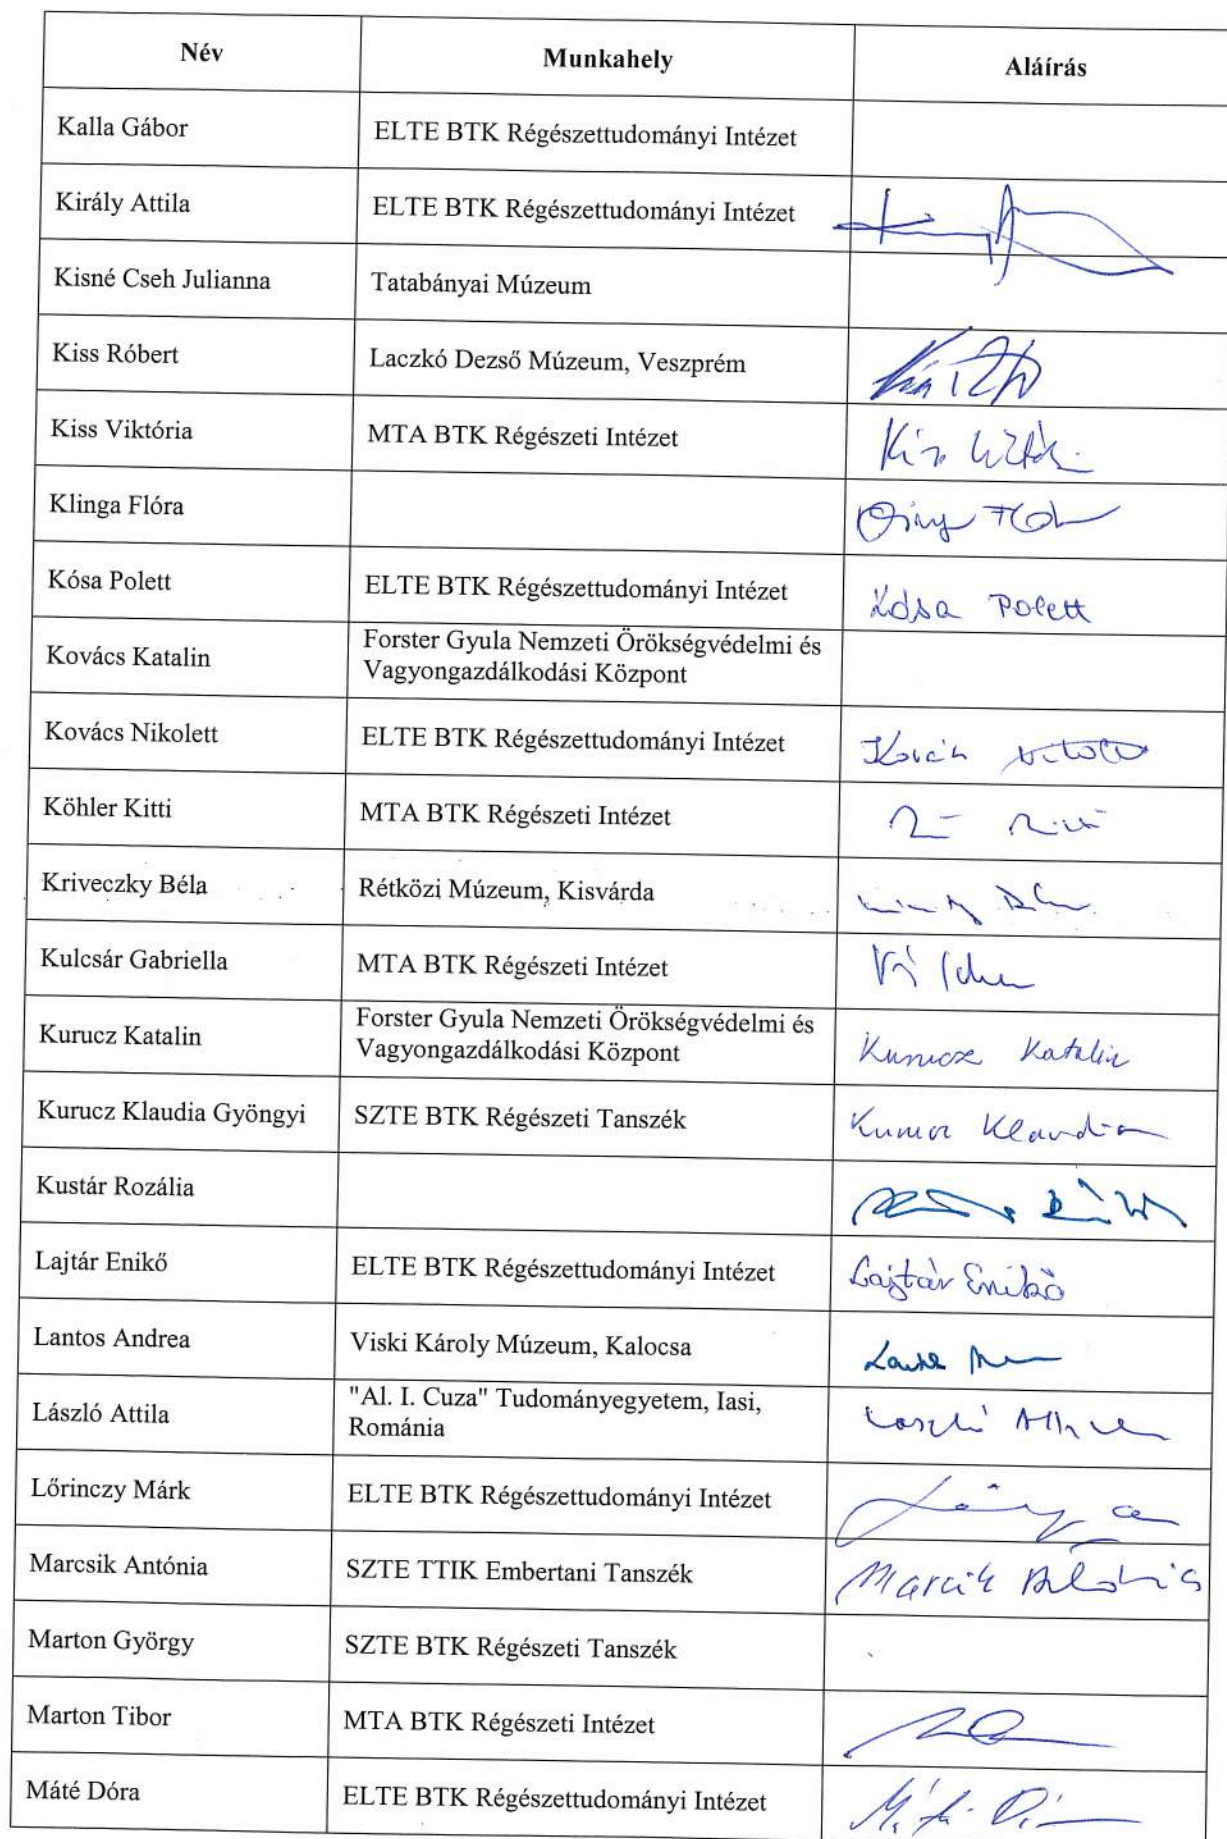 Név Munkahely Aláírás
Kalla Gábor ELTE BTK Régészettudományi Intézet
Király Attila ELTE BTK Régészettudományi Intézet
Kisné Cseh Julianna Tatabányai Múzeum
Kiss Róbert Laczkó Dezső Múzeum, Veszprém
Kiss Viktória MTA BTK Régészeti Intézet
Klinga Flóra
Kósa Polett ELTE BTK Régészettudományi Intézet Kósa Polett
Kovács Katalin Forster Gyula Nemzeti Örökségvédelmi és
Vagyongazdálkodási Központ
Kovács Nikolett ELTE BTK Régészettudományi Intézet
Köhler Kitti MTA BTK Régészeti Intézet
Kriveczky Béla Rétközi Múzeum, Kisvárda
Kulcsár Gabriella MTA BTK Régészeti Intézet
Kurucz Katalin Forster Gyula Nemzeti Örökségvédelmi és
Vagyongazdálkodási Központ Kurucz Katalin
Kurucz Klaudia Gyöngyi SZTE BTK Régészeti Tanszék Kurucz Klaudia
Kustár Rozália
Lajtár Enikő ELTE BTK Régészettudományi Intézet Lajtár Enikő
Lantos Andrea Viski Károly Múzeum, Kalocsa
László Attila "Al. I. Cuza" Tudományegyetem, Iasi,
Románia László Attila
Lőrinczy Márk ELTE BTK Régészettudományi Intézet
Marcsik Antónia SZTE TTIK Embertani Tanszék Marcsik Antónia
Marton György SZTE BTK Régészeti Tanszék
Marton Tibor MTA BTK Régészeti Intézet
Máté Dóra ELTE BTK Régészettudományi Intézet